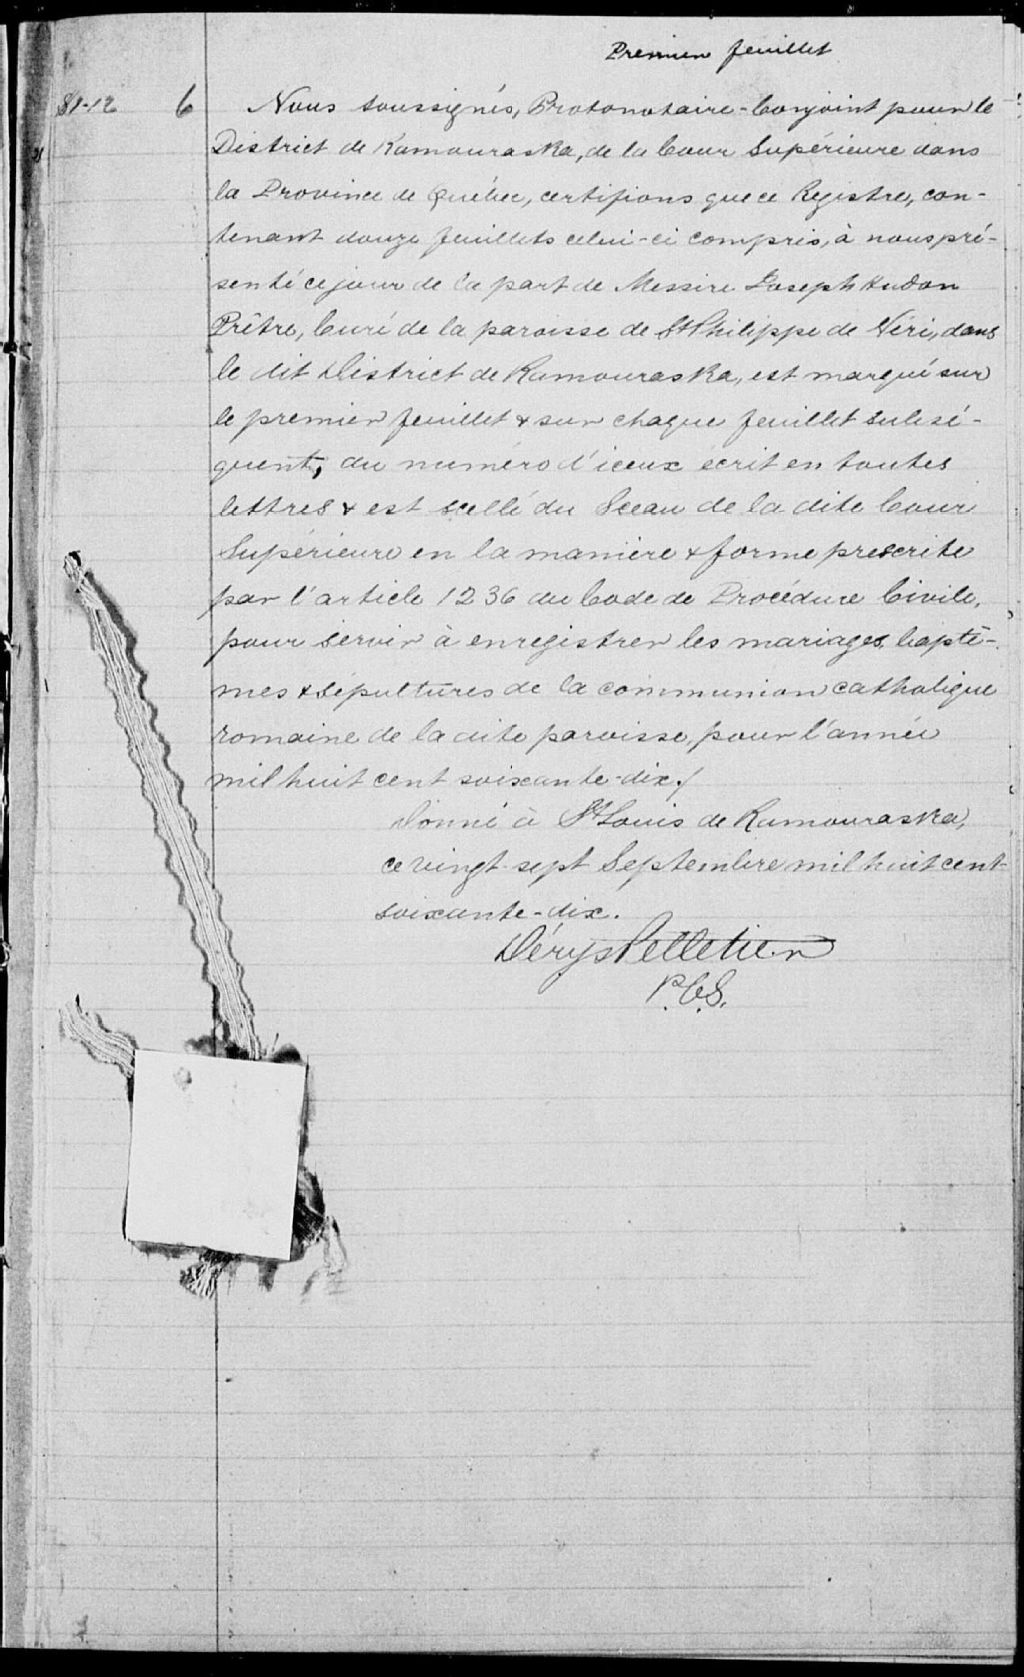 Premier feuillet
81-12 6 Nous soussignés, Protonotaire-Conjoint pour le
District de Kamouraska, de la Cour Supérieure dans
la Province de Québec, certifions que ce Registre, con-
tenant douze feuillets celui-ci compris, à nous pré-
senté ce jour de la part de Messire Joseph Hudon
Prêtre, Curé de la paroisse de St Philippe de Néri, dans
le dit District de Kamouraska, est marqué sur
le premier feuillet & sur chaque feuillet subsé-
quent, du numéro d'iceux écrit en toutes
lettres & est scellé du Sceau de la dite Cour
Supérieure en la manière & forme prescrite
par l'article 1236 du Code de Procédure Civile,
pour servir à enregistrer les mariages, baptê-
mes & sépultures de la communion catholique
romaine de la dite paroisse, pour l'année
mil huit cent soixante-dix./
Donné à St Louis de Kamouraska,
ce vingt-sept Septembre mil huit cent-
soixante-dix.
Pelletier
P.C.S.